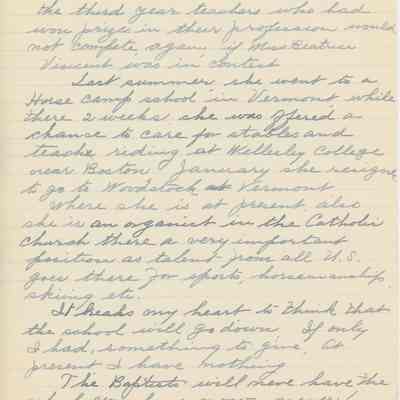 the third year teachers who had
won prizes in their profession would
not compete again if Miss Beatrice
Vincent was in contest
Last summer she went to a
Horse Camp school in Vermont while
there 2 weeks she was offered a
chance to care for stables and
teach riding at Wellesley College
near Boston January she resigned
to go to Woodstock Vermont
Where she is at present also
she is an organist in the Catholic
Church there a very important
position as talent from all U.S.
goes there for sports, horsemanship,
skiing etc.
It breaks my heart to think that
the school will go down. If only
I had, something to give. At
present I have nothing
The Baptists will never have the